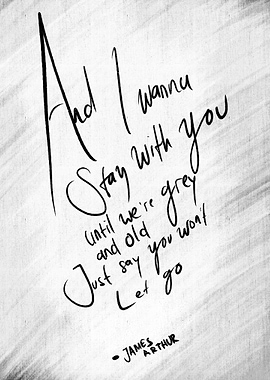 And I wanna
Stay with you
until we're grey
and old
Just say you won't
Let go
- JAMES
ARTHUR